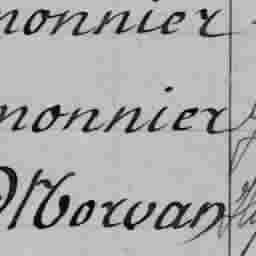 monnier
monnier
Morvan